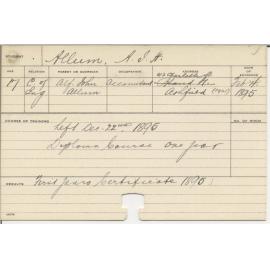 STUDENT Allum, A. J. H.
AGE RELIGION PARENT OR GUARDIAN OCCUPATION ADDRESS DATE OF ENTRANCE
17 C. of Eng Alf John Allum Accountant Ashfield Feb 4 1895
COURSE OF TRAINING NO. OF WEEKS
Left Dec. 22nd 1895
Diploma Course one year
RESULTS First years Certificate 1895
NOTE